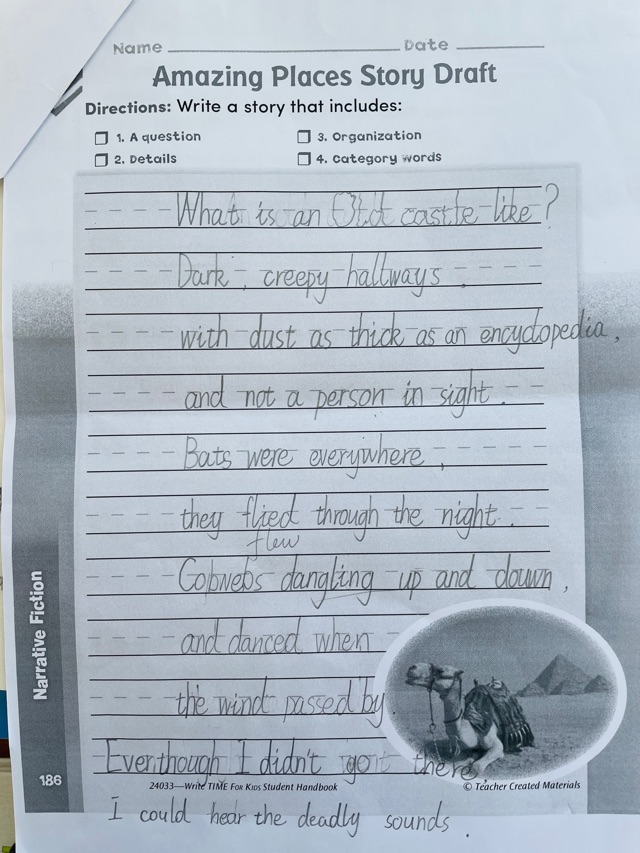 Name Date
Amazing Places Story Draft
Directions: Write a story that includes:
1. A question
3. Organization
2. Details
4. Category words
What is an Old castle like?
Dark, creepy hallways,
with dust as thick as an encyclopedia,
and not a person in sight.
Bats were everywhere,
they flied through the night.
flew
Cobwebs dangling up and down,
and danced when
the wind passed by.
Eventhough I didn't go there,
I could hear the deadly sounds.
Narrative Fiction
186
24033—Write TIME For Kids Student Handbook
© Teacher Created Materials